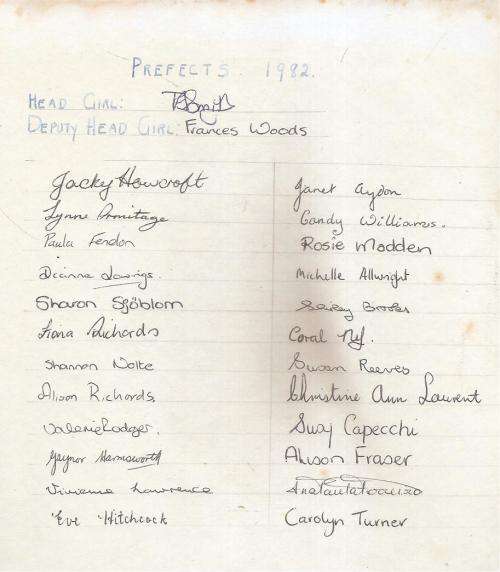 PREFECTS. 1982.
HEAD GIRL:
DEPUTY HEAD GIRL: Frances Woods
Jacky Howcroft
Lynne Armitage
Paula Fendon
Sharon Sjöblom
Fiona Richards
Shannon Nolte
Alison Richards.
Valerie Rodger.
Gaynor Harmsworth
Vivienne Lawrence
Eve Hitchcock
Janet Aydon
Candy Williams.
Rosie Madden
Michelle Allwright
Brooks
Coral Nel.
Susan Reeves
Christine Ann Laurent
Susy Capecchi
Alison Fraser
Carolyn Turner